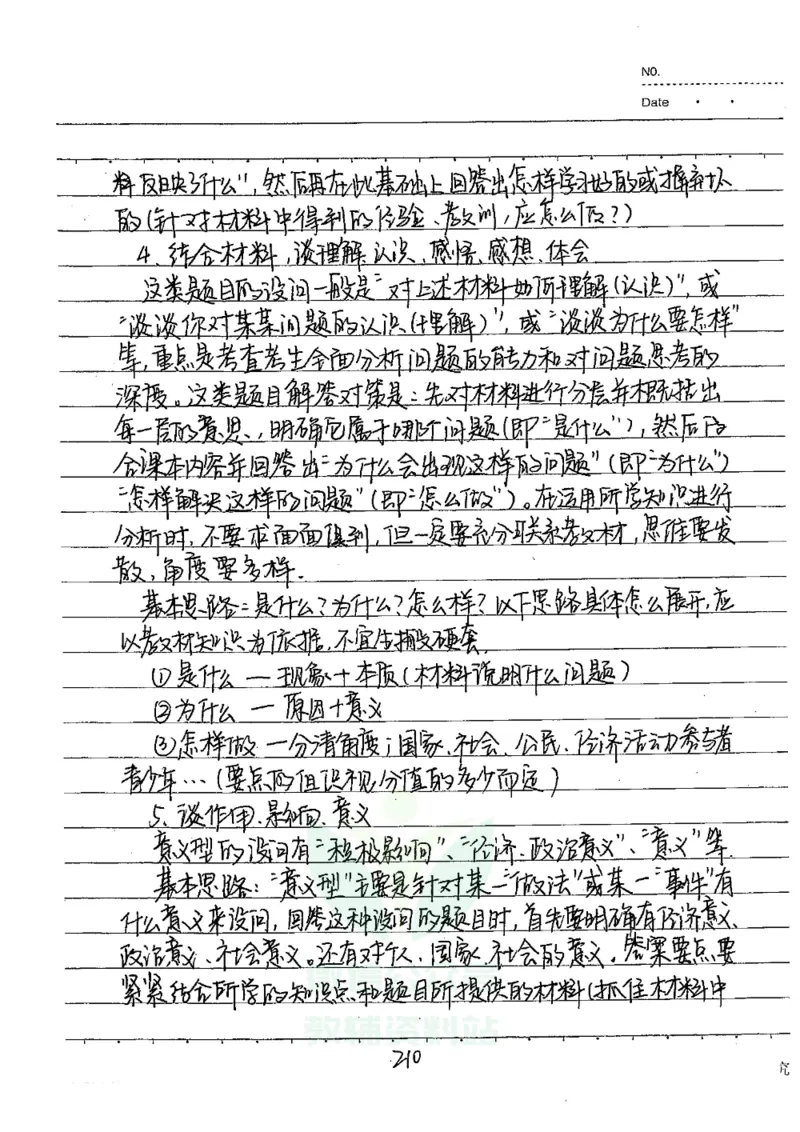 NO.
Date
料反映了什么"，然后再在此基础上回答出怎样学习好的或摒弃坏
的（针对材料中得到的经验、教训，应怎么做？）
4、结合材料，谈理解、认识、感悟、感想、体会
这类题目的设问一般是"对上述材料如何理解（认识）"，或
"谈谈你对某某问题的认识（理解）"，或"谈谈为什么要怎样"
等，重点是考查考生全面分析问题的能力和对问题思考的
深度。这类题目解答对策是：先对材料进行分层并概括出
每一层的意思，明确它属于哪个问题（即"是什么"），然后结
合课本内容并回答出"为什么会出现这样的问题"（即"为什么"）
"怎样解决这样的问题"（即"怎么做"）。在运用所学知识进行
分析时，不要求面面俱到，但一定要充分联系教材，思维要发
散，角度要多样．
基本思路：是什么？为什么？怎么样？以下思路具体怎么展开，应
以教材知识为依据，不宜生搬硬套．
①是什么 — 现象＋本质（材料说明什么问题）
②为什么 — 原因＋意义
③怎样做 — 分清角度；国家、社会、公民、经济活动参与者
青少年…（要点的但视分值的多少而定）
5、谈作用、影响、意义
意义型的设问有"积极影响"、"经济、政治意义"、"意义"等．
基本思路："意义型"主要是针对某一"做法"或某一"事件"有
什么意义来设问，回答这种设问的题目时，首先要明确有经济意义、
政治意义、社会意义。还有对个人、国家、社会的意义。答案要点要
紧紧结合所学的知识点和题目所提供的材料（抓住材料中
教辅资料站
210